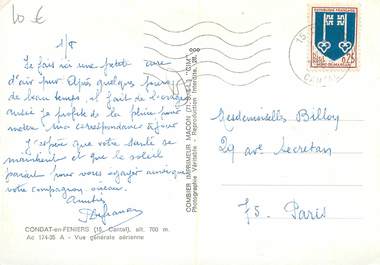 10 €
1/8
Je fais ici une petite cure
d'air pur. Après quelques jours
de beau temps, il fait de l'orage
aussi je profite de la pluie pour
mettre ma correspondance à jour
J'espère que votre santé se
maintient et que le soleil
parisien pour vous égayer ainsi que
votre compagnon oiseau.
Amitiés
CONDAT-en-FENIERS (15, Cantal), alt. 700 m.
Ac 174-35 A - Vue générale aérienne
COMBIER IMPRIMEUR MACON (71-S.-et-L.) "CIM"
Photographie Véritable - Reproduction Interdite
REPUBLIQUE FRANÇAISE
0,25
15
CANTAL
Mesdemoiselles Billoy
29 ave Secretan
75. Paris